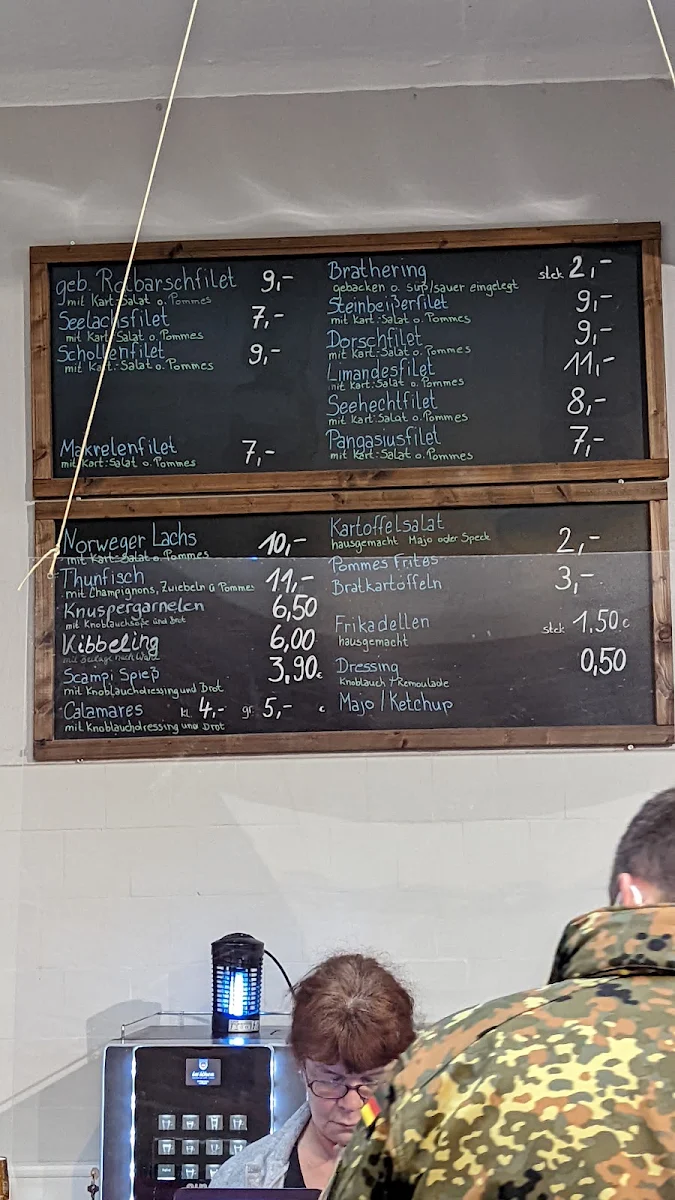 geb. Rotbarschfilet 9,-
mit Kart.-Salat o. Pommes
Seelachsfilet 7,-
mit Kart.-Salat o. Pommes
Schollenfilet 9,-
mit Kart.-Salat o. Pommes
Makrelenfilet 7,-
mit Kart.-Salat o. Pommes
Brathering stck 2,-
gebacken o. süß/sauer eingelegt
Steinbeißerfilet 9,-
mit Kart.-Salat o. Pommes
Dorschfilet 9,-
mit Kart.-Salat o. Pommes
Limandesfilet 11,-
mit Kart.-Salat o. Pommes
Seehechtfilet 8,-
mit Kart.-Salat o. Pommes
Pangasiusfilet 7,-
mit Kart.-Salat o. Pommes
Norweger Lachs 10,-
mit Kart.-Salat o. Pommes
Thunfisch 11,-
mit Champignons, Zwiebeln u Pommes
Knuspergarnelen 6,50
mit Knoblauchsoße und Brot
Kibbeling 6,00
mit Beilage nach Wahl
Scampi Spieß 3,90€
mit Knoblauchdressing und Brot
Calamares kl. 4,- gr. 5,- €
mit Knoblauchdressing und Brot
Kartoffelsalat 2,-
hausgemacht Majo oder Speck
Pommes Frites
Bratkartoffeln 3,-
Frikadellen stck 1,50€
hausgemacht
Dressing 0,50
Knoblauch / Remoulade
Majo / Ketchup